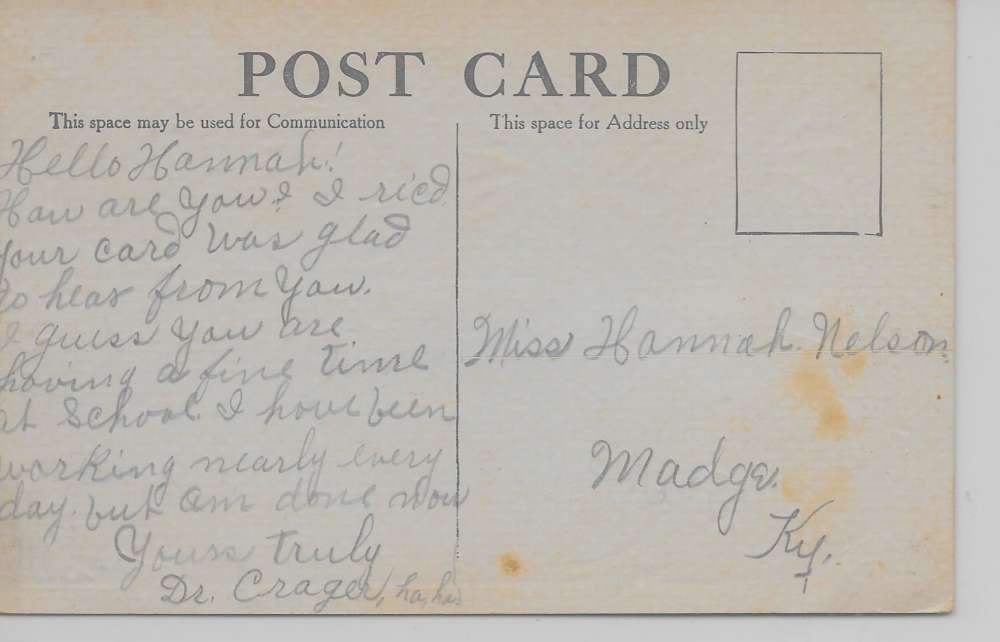 POST CARD
This space may be used for Communication
This space for Address only
Hello Hannah!
How are you? I ricd
your card was glad
to hear from you.
I guess you are
having a fine time
at School. I have been
working nearly every
day. but am done now
Yours truly
Dr. Crager, ha, ha,
Miss Hannah. Nelson.
Madge.
Ky.